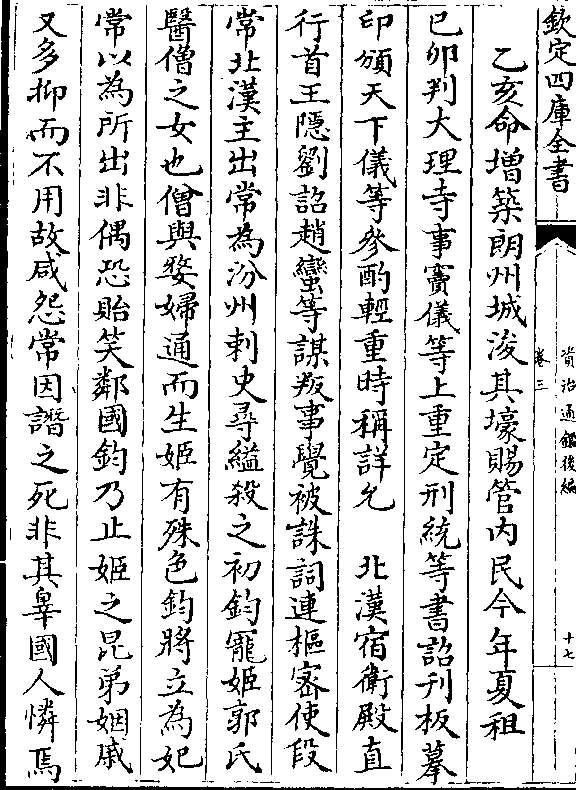 欽定四庫全書
資治通鑑後編
卷三
十七
乙亥命増築朗州城浚其壕賜管内民今年夏租
己卯判大理寺事竇儀等上重定刑統等書詔刋板摹
印頒天下儀等參酌輕重時稱詳允　北漢宿衛殿直
行首王隱劉詔趙鸞等謀叛事覺被誅詞連樞密使段
常北漢主出常為汾州刺史尋縊殺之初鈞寵姬郭氏
醫僧之女也僧與嫠婦通而生姬有殊色鈞將立為妃
常以為所出非偶恐貽笑鄰國鈞乃止姬之昆弟姻戚
又多抑而不用故咸怨常因譖之死非其辠國人憐焉